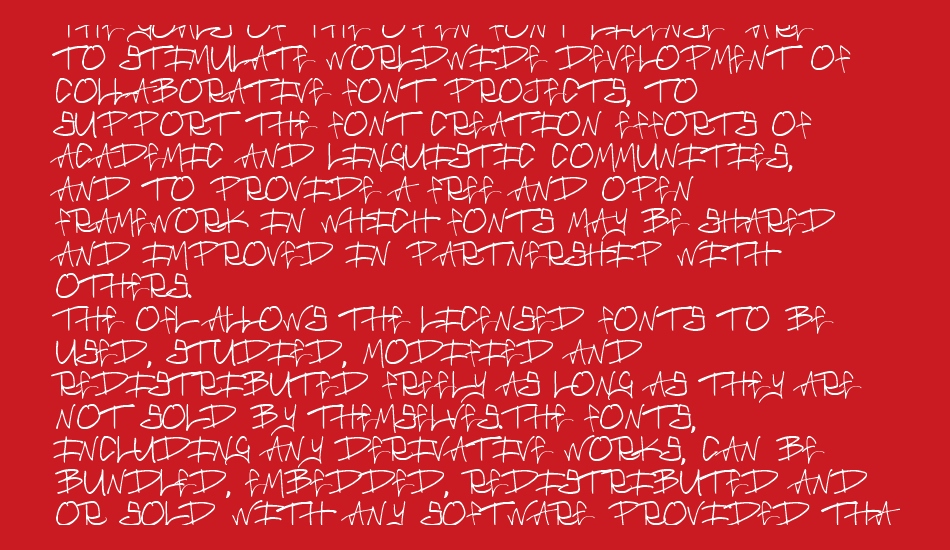 THE GOALS OF THE OPEN FONT LICENSE ARE
TO STIMULATE WORLDWIDE DEVELOPMENT OF
COLLABORATIVE FONT PROJECTS, TO
SUPPORT THE FONT CREATION EFFORTS OF
ACADEMIC AND LINGUISTIC COMMUNITIES,
AND TO PROVIDE A FREE AND OPEN
FRAMEWORK IN WHICH FONTS MAY BE SHARED
AND IMPROVED IN PARTNERSHIP WITH
OTHERS.
THE OFL ALLOWS THE LICENSED FONTS TO BE
USED, STUDIED, MODIFIED AND
REDISTRIBUTED FREELY AS LONG AS THEY ARE
NOT SOLD BY THEMSELVES.THE FONTS,
INCLUDING ANY DERIVATIVE WORKS, CAN BE
BUNDLED, EMBEDDED, REDISTRIBUTED AND
OR SOLD WITH ANY SOFTWARE PROVIDED THA